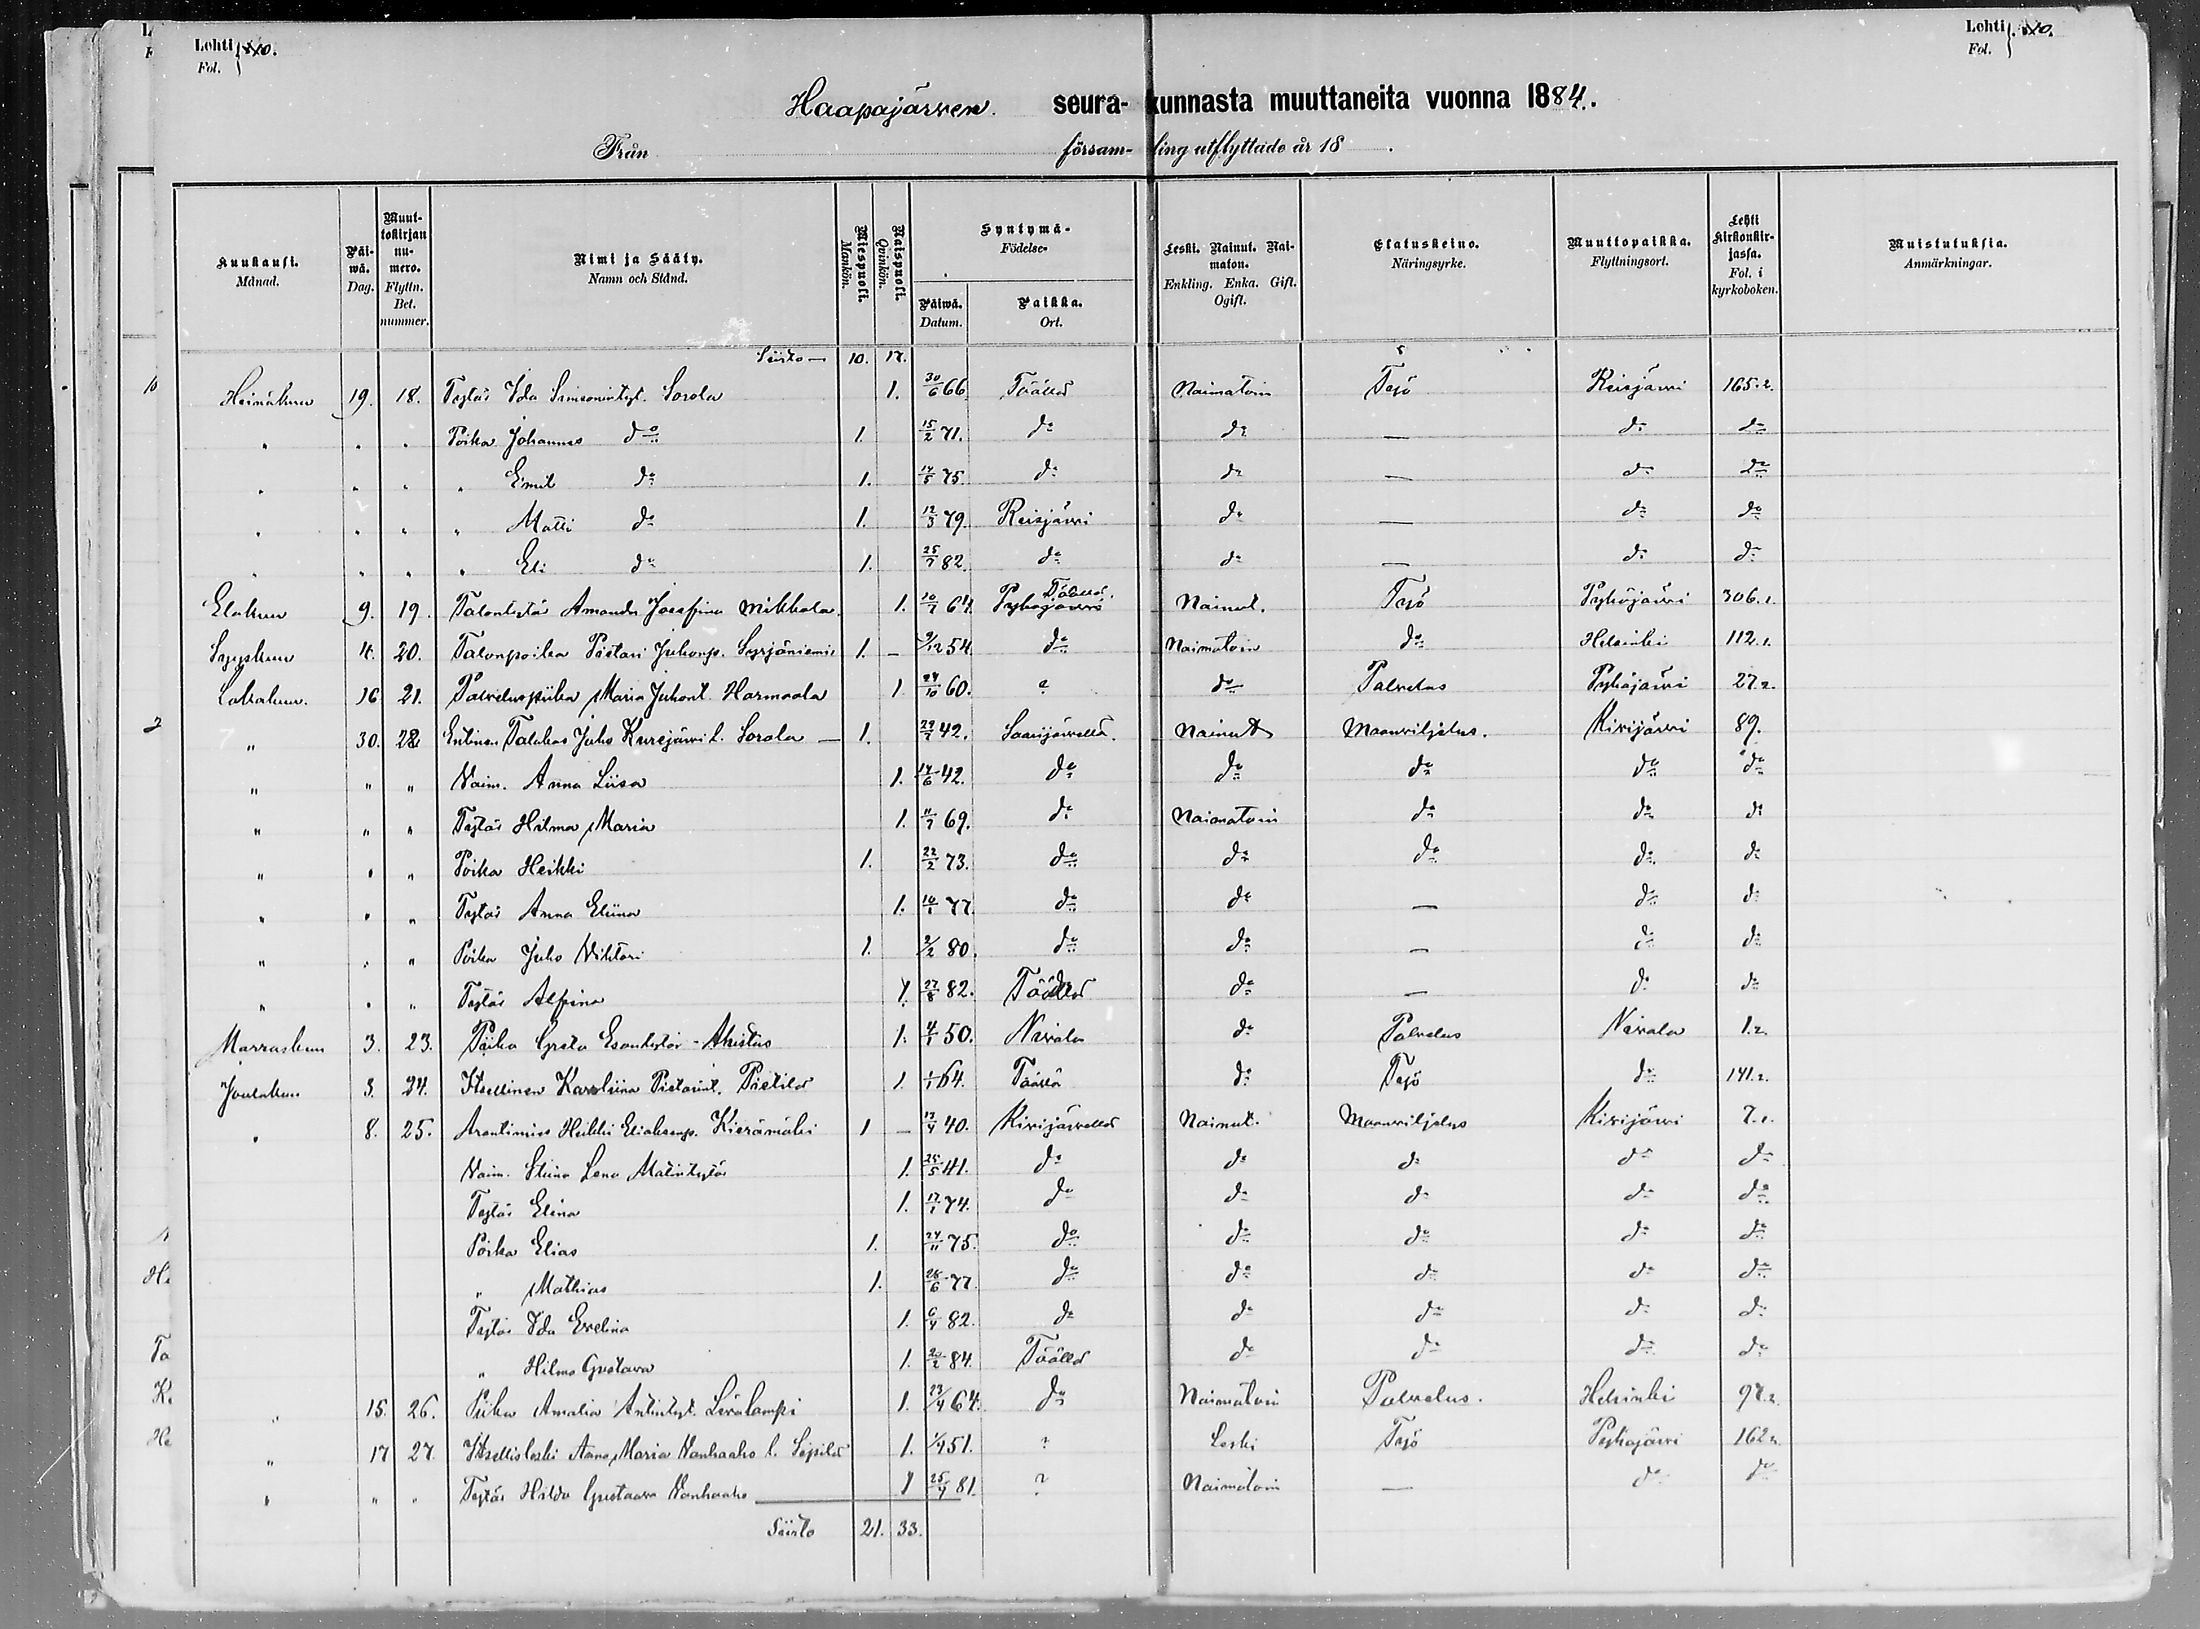 Lehti
Fol.
Lehti
Fol.
Haapajärven seura-kunnasta muuttaneita vuonna 1884.
Från försam-ling utflyttade år 18 .
Kuukausi. Månad.
Päi-wä. Dag.
Muut-tokirjan nu-mero. Flyttn. Bet. nummer.
Nimi ja Sääty. Namn och Stånd.
Miespuoli. Mankön.
Naispuoli. Qvinkön.
Syntymä- Födelse-
Päiwä. Datum.
Paikka. Ort.
Leski. Nainut. Nai-maton. Enkling. Enka. Gift. Ogift.
Elatuskeino. Näringsyrke.
Muuttopaikka. Flyttningsort.
Lehti kirkonkir-jassa. Fol. i kyrkoboken.
Muistutuksia. Anmärkningar.
Siirto — 10. 17.
Heinäkuu 19. 18. Tytär Ida Simsonintyt. Sorola 1. 30/6 66 Täällä Naimatoin Työ Reisjärvi 165.2.
" " " Poika Johannes do 1. 15/2 71. do do — do do
" " " " Emil do 1. 14/5 75. do do — do do
" " " " Matti do 1. 12/3 79. Reisjärvi do — do do
" " " " Eli do 1. 25/7 82. do do — do do
Elokuu 9. 19. Talontytär Amanda Josefina Mikkola. 1. 10/7 64. Pyhäjärvi Täällä. Nainut. Työ Pyhäjärvi 306.1.
Syyskuu 4. 20. Talonpoika Pietari Juhonp. Syrjäniemi 1. — 9/12 54. do Naimatoin do Helsinki 112.1.
Lokakuu. 16 21. Palveluspiika Maria Juhont. Harmaala 1. 24/10 60. ? do Palvelus Pyhäjärvi 27.2.
" 30. 22. Entinen Talokas Juho Kurejärvi l. Sorola — 1. 29/7 42. Saarijärvellä. Nainut Maanviljelus. Kivijärvi 89.
" " " Vaim. Anna Liisa 1. 14/6 42. do do do do do
" " " Tytär Hilma Maria 1. 11/7 69. do Naimatoin do do do
" " " Poika Heikki 1. 22/2 73. do do do do do
" " " Tytär Anna Eliina 1. 10/1 77. do do — do do
" " " Poika Juho Viktori 1. 2/2 80. do do — do do
" " " Tytär Alfina 1. 27/8 82. Täällä do — do do
Marraskuu 3. 23. Piika Greta Esantytär Ahistus 1. 4/1 50. Nivala do Palvelus Nivala 1.2.
Joulukuu 3. 24. Itsellinen Karoliina Pietarint. Pietilä 1. 1/1 64. Täällä do Työ do 141.2.
" 8. 25. Arentimies Heikki Eliaksenp. Kierämäki 1 — 17/4 40. Kivijärvellä Nainut. Maanviljelus Kivijärvi 7.1.
Vaim. Stiina Lena Matintytär 1. 25/5 41. do do do do do
Tytär Elina 1. 17/1 74. do do do do do
Poika Elias 1. 24/11 75. do do do do do
" Mathias 1. 28/6 77. do do do do do
Tytär Ida Evelina 1. 6/4 82. do do do do do
" Hilma Gustava 1. 20/2 84. Täällä do do do do
" 15. 26. Piika Amalia Antintyt. Livalampi 1. 23/4 64. do Naimatoin Palvelus. Helsinki 97.2.
" 17 27. Itsellisleski Anna Maria Vanhaaho l. Sipilä 1. 1/4 51. ? Leski Työ Pyhäjärvi 162.2.
" " " Tytär Hilda Gustaava Vanhaaho 1 25/4 81. ? Naimatoin — do do
Siirto 21. 33.